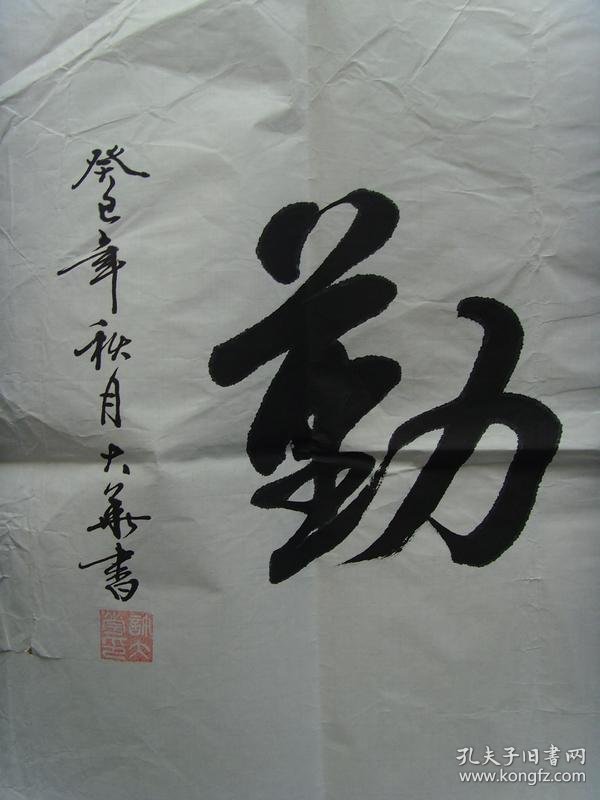 勤
癸巳年秋月大華書
孔夫子旧书网
www.kongfz.com